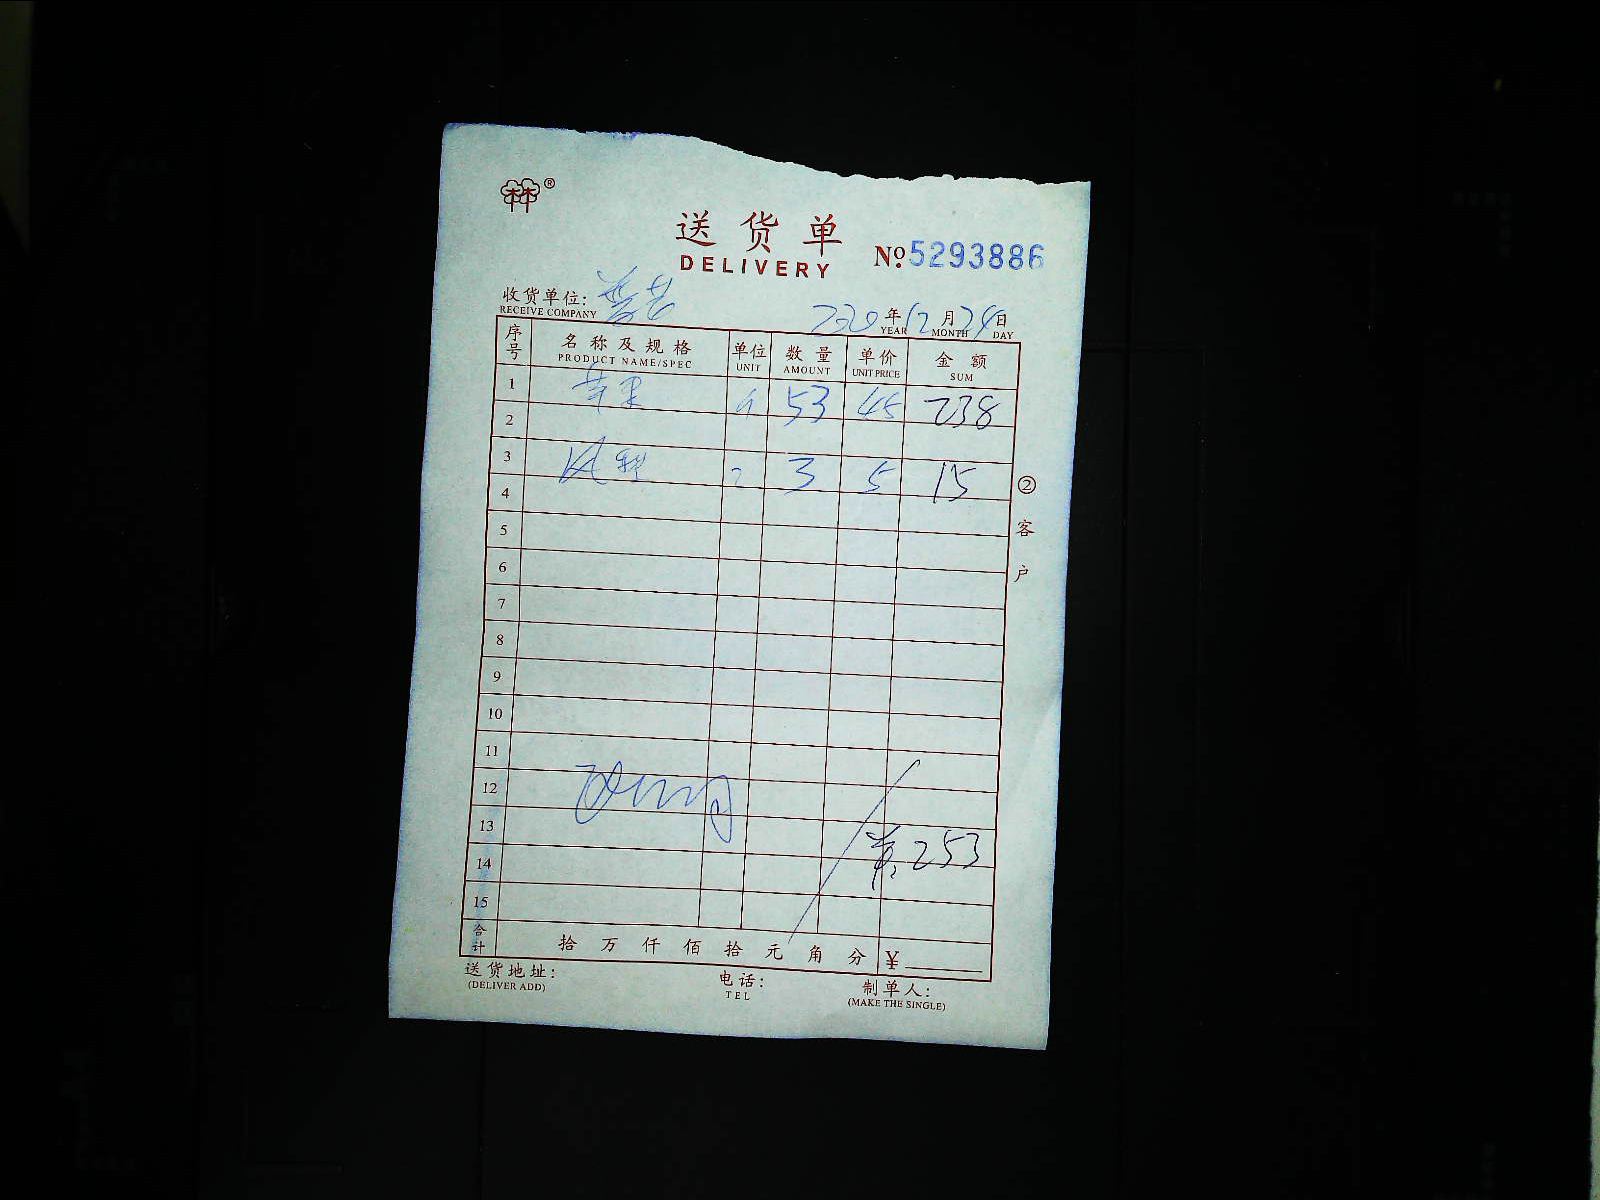 ®
送货单
DELIVERY
№ 5293886
收货单位:
RECEIVE COMPANY
2020年12月24日
YEAR MONTH DAY
序号 名称及规格 单位 数量 单价 金额
PRODUCT NAME/SPEC UNIT AMOUNT UNIT PRICE SUM
1 苹果 53 45 238
2
3 3 5 15
4
5
6
7
8
9
10
11
12
13 253
14
15
合计 拾 万 仟 佰 拾 元 角 分 ¥
②客户
送货地址: 电话: 制单人:
(DELIVER ADD) TEL (MAKE THE SINGLE)